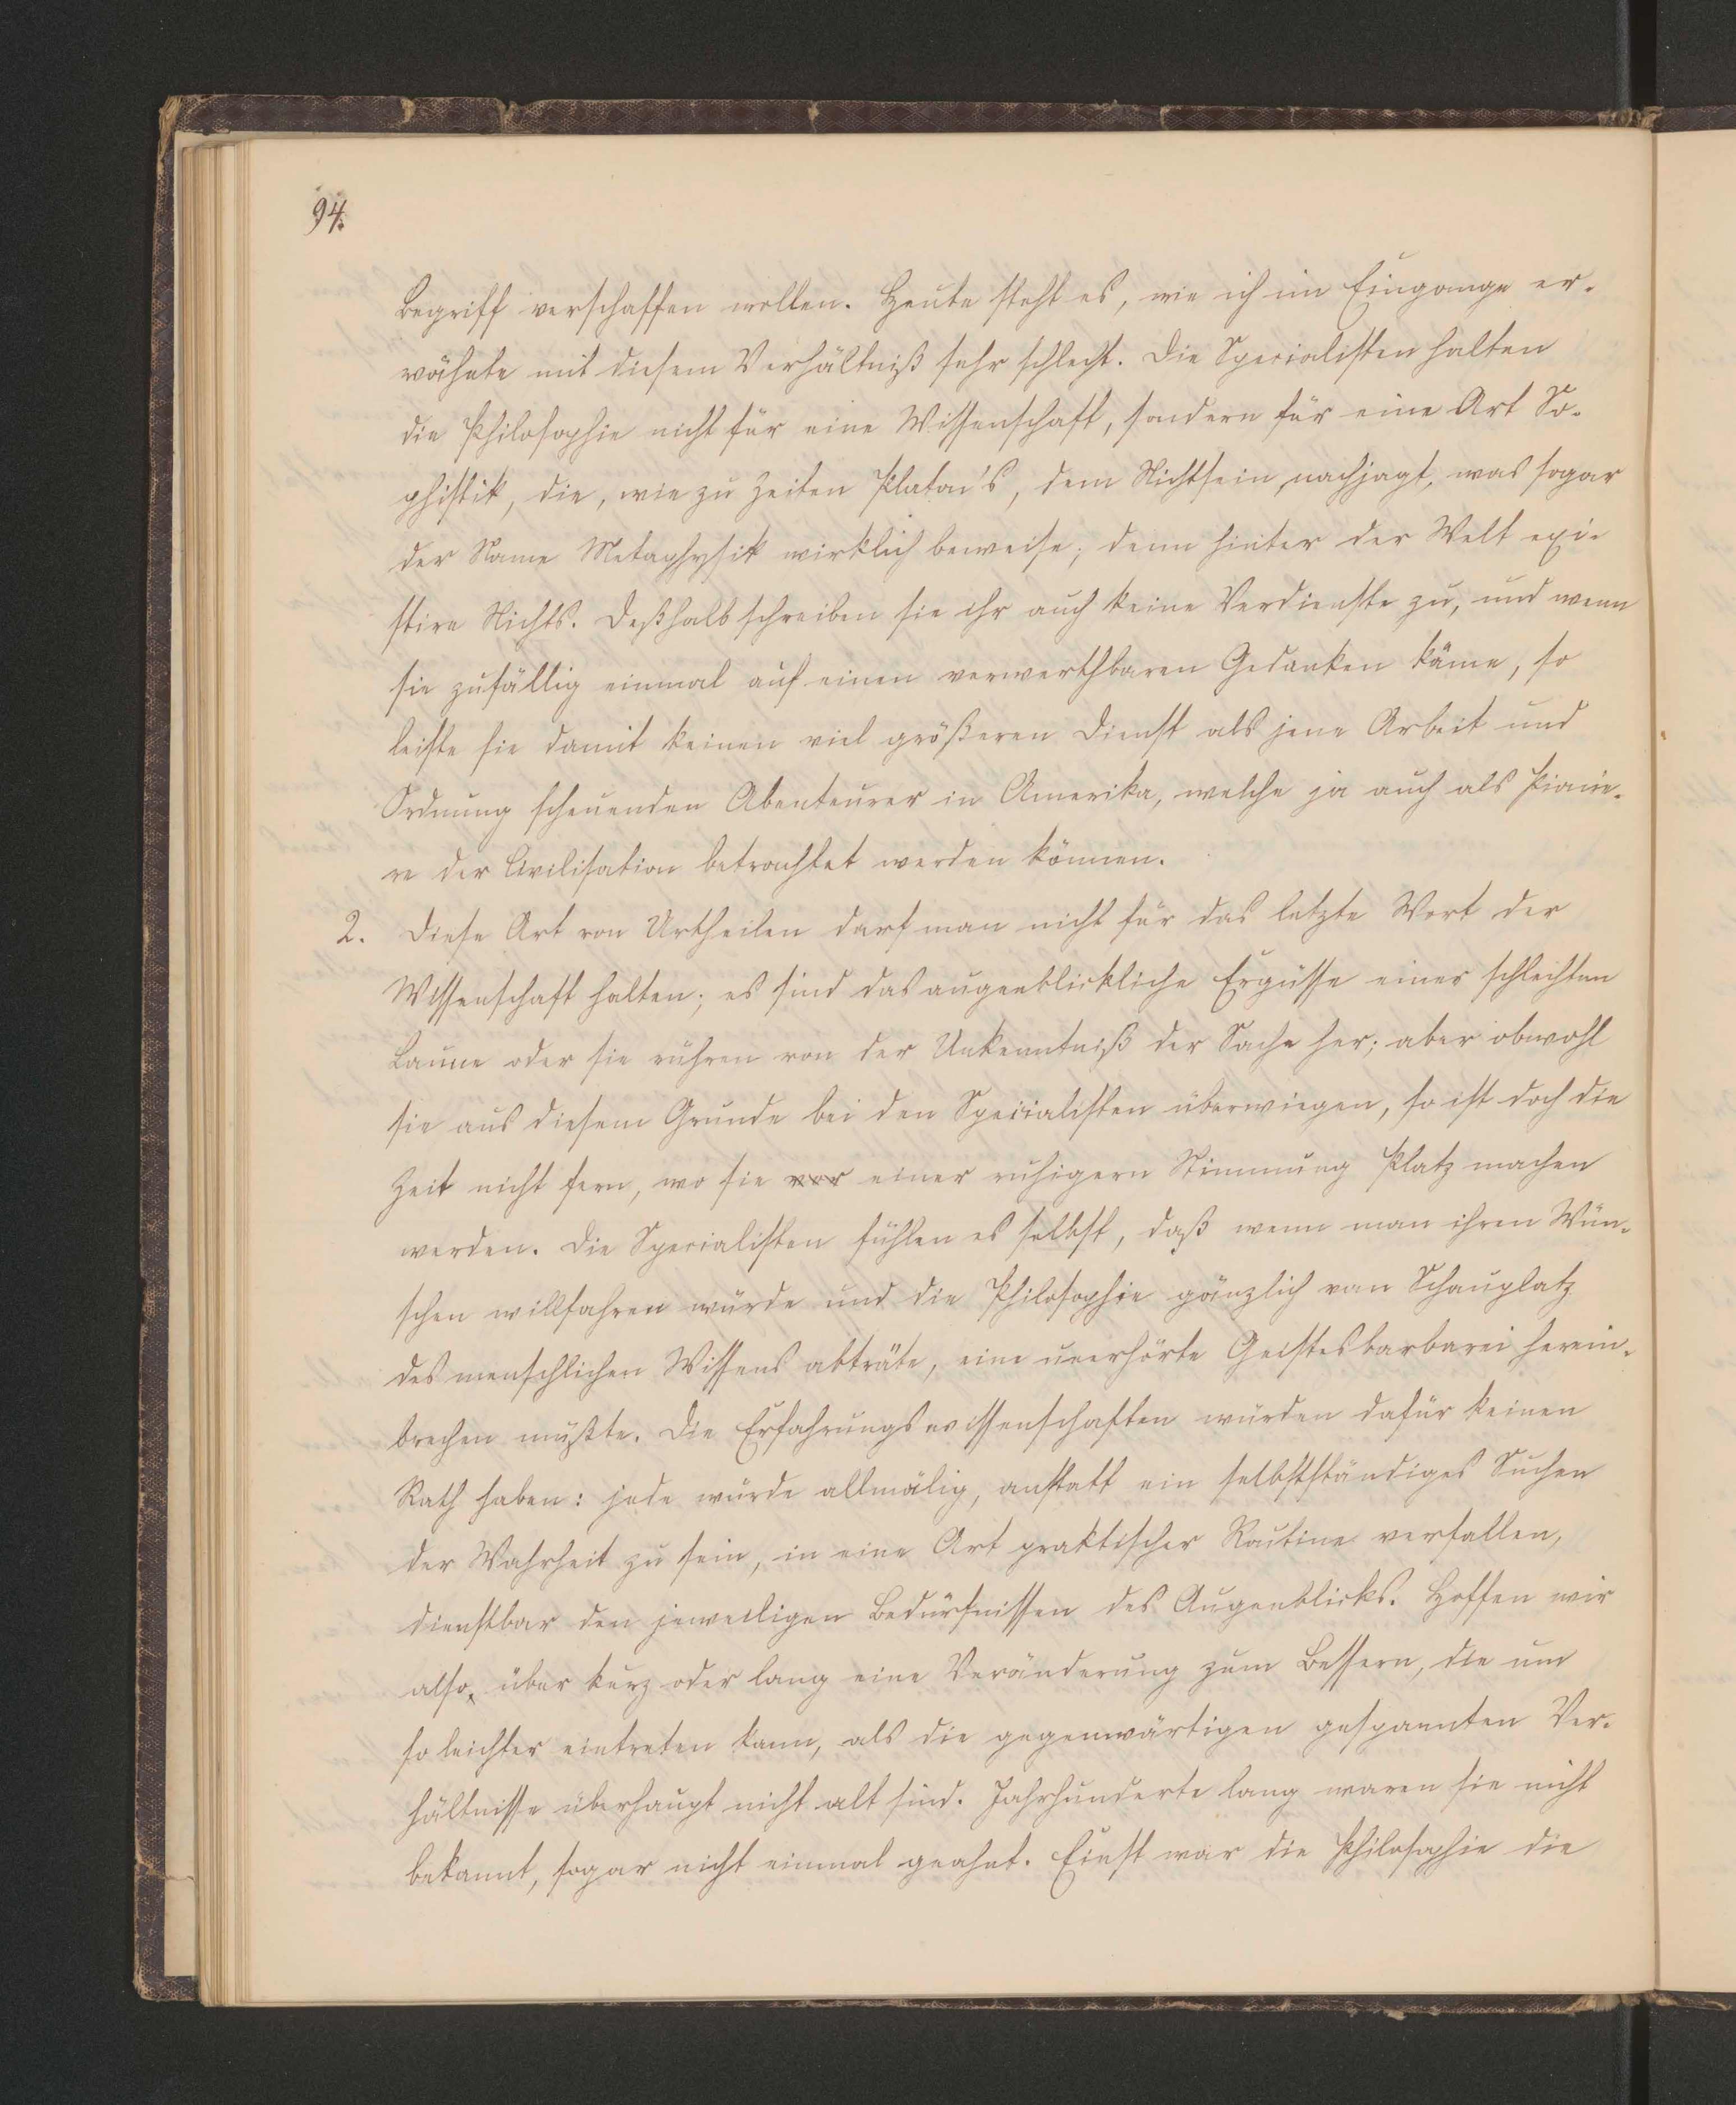 94.
Begriff verschaffen wollen. Heute steht es, wie ich im Eingange er-
wähnte mit diesem Verhältniß sehr schlecht. Die Specialisten halten
die Philosophie nicht für eine Wissenschaft, sondern für eine Art So-
phistik, die, wie zu Zeiten Platon's, dem Nichtsein nachjagt, was sogar
der Name Metaphysik wirklich beweise; denn hinter der Welt exi-
stire Nichts. Deßhalb schreiben sie ihr auch keine Verdienste zu, und wenn
sie zufällig einmal auf einen verwerthbaren Gedanken käme, so
leiste sie damit keinen viel größeren Dienst als jene Arbeit und
Ordnung scheuenden Abenteurer in Amerika, welche ja auch als Pionie-
re der Civilisation betrachtet werden können.
2. Diese Art von Urtheilen darf man nicht für das letzte Wort der
Wissenschaft halten; es sind das augenblickliche Ergüsse einer schlechten
Laune oder sie rühren von der Unkenntniß der Sache her; aber obwohl
sie aus diesem Grunde bei den Specialisten überwiegen, so ist doch die
Zeit nicht fern, wo sie vor einer ruhigern Stimmung Platz machen
werden. Die Specialisten fühlen es selbst, daß wenn man ihren Wün-
schen willfahren würde und die Philosophie gänzlich vom Schauplatz
des menschlichen Wissens abträte, eine unerhörte Geistesbarbarei herein-
brechen müßte. Die Erfahrungswissenschaften würden dafür keinen
Rath haben: jede würde allmälig, anstatt ein selbstständiges Suchen
der Wahrheit zu sein, in eine Art praktischer Routine verfallen,
dienstbar den jeweiligen Bedürfnissen des Augenblicks. Hoffen wir
also, über kurz oder lang eine Veränderung zum Bessern, die um
so leichter eintreten kann, als die gegenwärtigen gespannten Ver-
hältnisse überhaupt nicht alt sind. Jahrhunderte lang waren sie nicht
bekannt, sogar nicht einmal geahnt. Einst war die Philosophie die